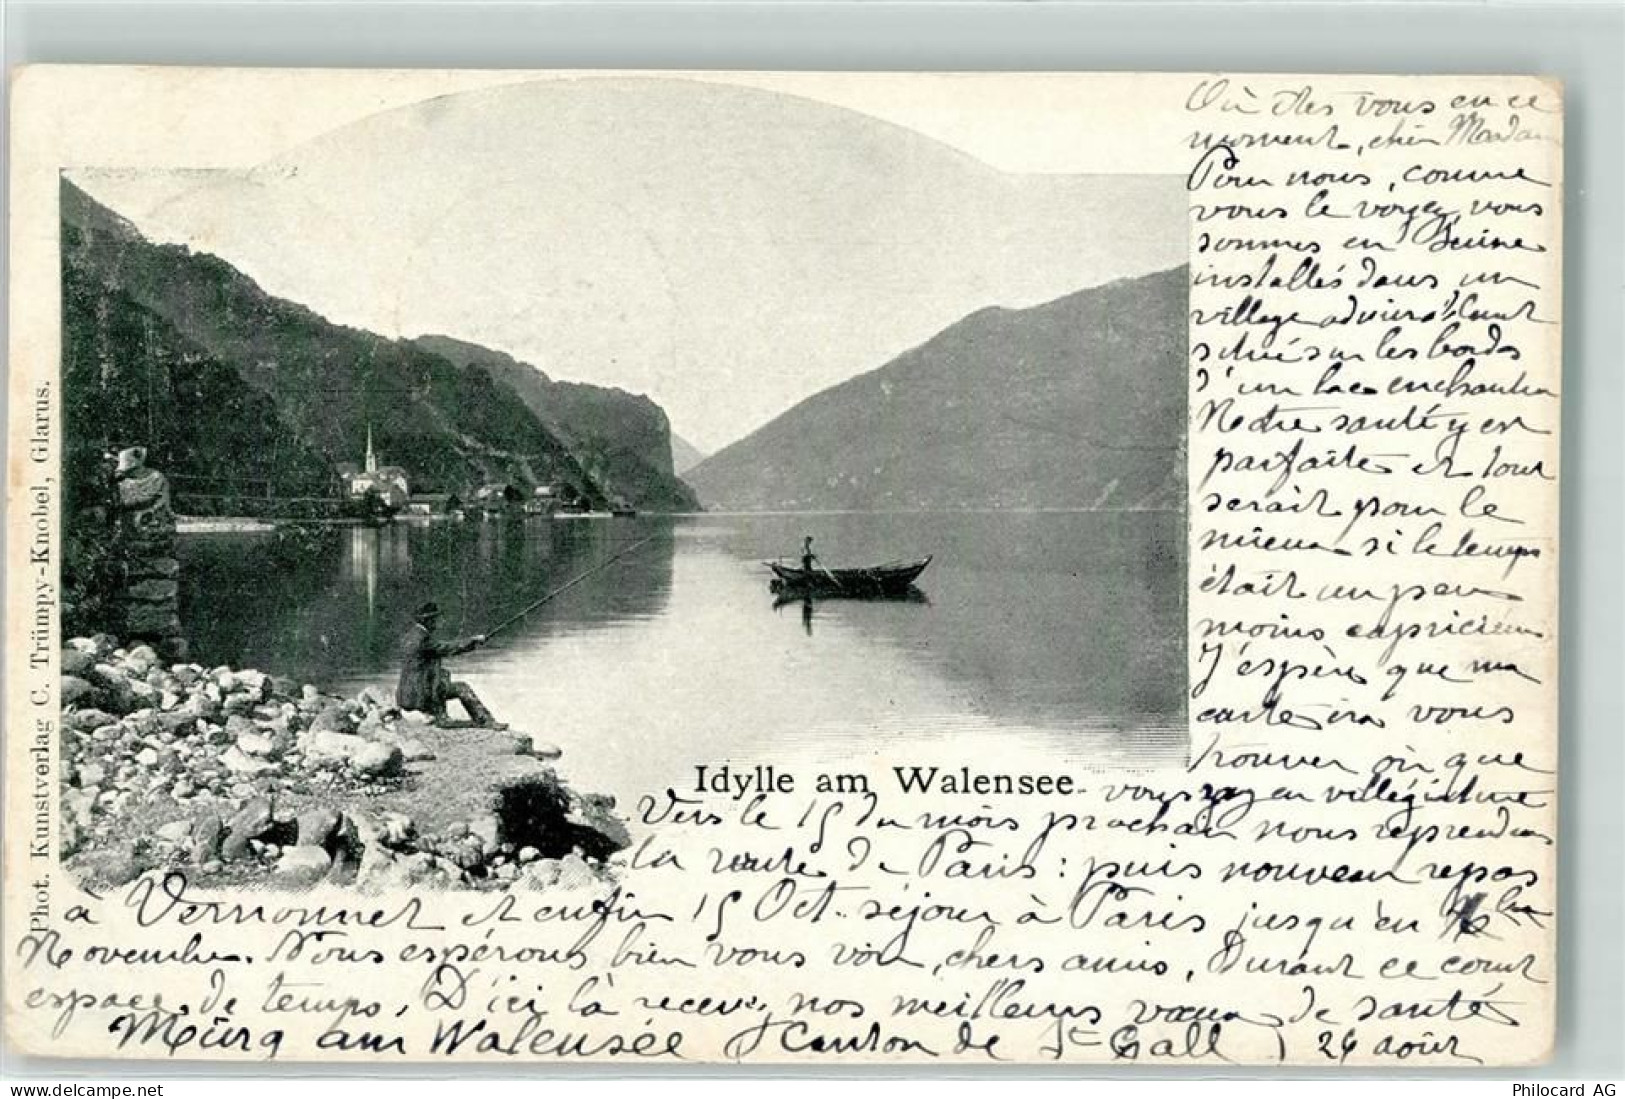 Où êtes vous en ce
moment, chère Madame
Pour nous, comme
vous le voyez, nous
sommes en Suisse
installés dans un
village admirablement
situé sur les bords
d'un lac enchanteur
Notre santé y est
parfaite et tout
serait pour le
mieux si le temps
était un peu
moins capricieux
J'espère que ma
carte ira vous
trouver où que
vous soyez en villégiature
Idylle am Walensee
Vers le 15 du mois prochain nous reprendrons
la route de Paris : puis nouveau repos
à Vernonnet et enfin 15 Oct. séjour à Paris jusqu'en
Novembre. Nous espérons bien vous voir, chers amis, Durant ce court
espace de temps. D'ici là recevez nos meilleurs vœux de santé
Mürg am Walensée (Canton de St Gall) 24 août
Phot. Kunstverlag C. Trümpy-Knobel, Glarus.
Philocard AG